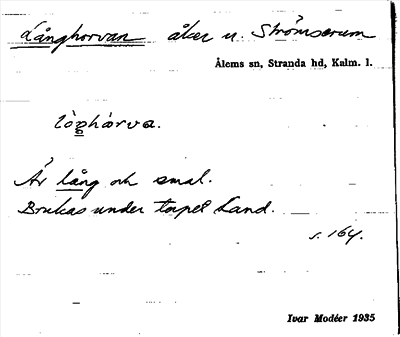 Långhorvan åker u. Strömserum
Ålems sn, Stranda hd, Kalm. l.
lòŋhòrva.
Är lång och smal.
Brukas under torpet Land.
s. 164.
Ivar Modéer 1935